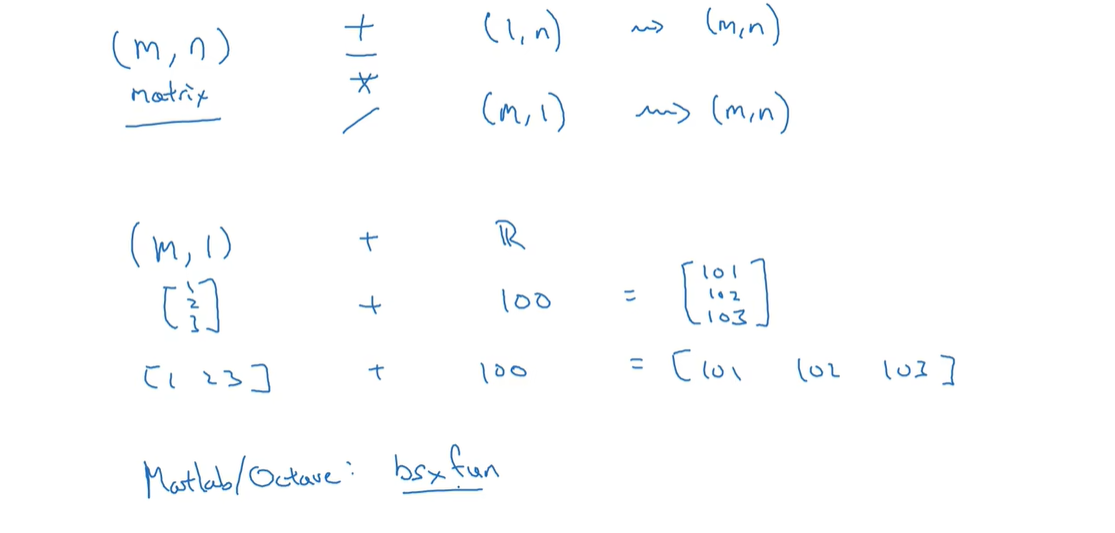 (m, n) + (1, n) ⇝ (m, n)
matrix -
*
/ (m, 1) ⇝ (m, n)
(m, 1) + ℝ
[1 2 3] + 100 = [101 102 103]
[1 2 3] + 100 = [101 102 103]
Matlab/Octave: bsxfun